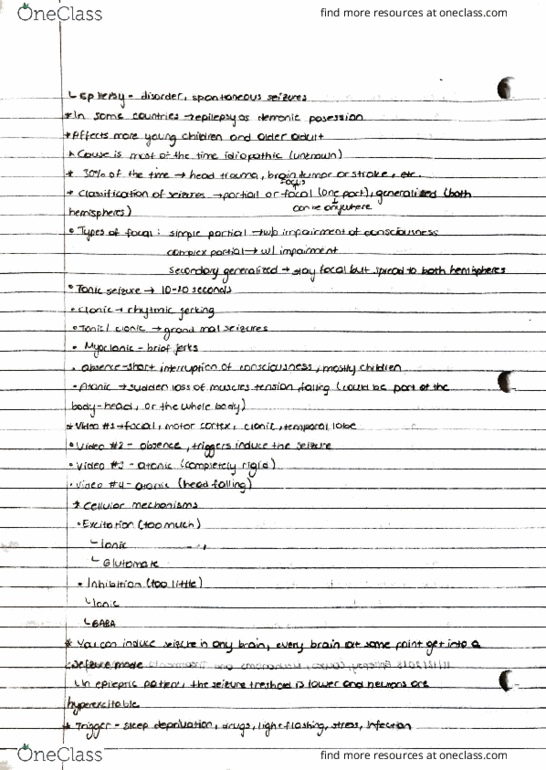 OneClass find more resources at oneclass.com
↳ Epilepsy - disorder, spontaneous seizures
* In some countries → epilepsy as demonic posession
* Affects more young children and older adult
* Cause is most of the time idiopathic (unknown)
* 30% of the time → head trauma, brain tumor or stroke, etc.
focus
* Classification of seizures → partial or focal (one part), generalized (both
can be anywhere
hemispheres)
• Types of focal: simple partial → w/o impairment of consciousness
complex partial → w/ impairment
secondary generalized → stay focal but spread to both hemispheres
• Tonic seizure → 10-20 seconds
• Clonic → rhythmic jerking
• Tonic/clonic → grand mal seizures
• Myoclonic - brief jerks
• absence - short interruption of consciousness, mostly children
• Atonic → sudden loss of muscles tension falling (could be part of the
body - head, or the whole body)
* Video #1 → focal, motor cortex, clonic, temporal lobe
• Video #2 - absence, triggers induce the seizure
• Video #3 - atonic (completely rigid)
• Video #4 - atonic (head falling)
* Cellular mechanisms
• Excitation (too much)
↳ Ionic
↳ Glutamate
• Inhibition (too little)
↳ Ionic
↳ GABA
* You can induce seizure in any brain, every brain at some point get into a
seizure mode
↳ In epileptic patient, the seizure treshold is lower and neurons are
hyperexcitable
* Trigger - sleep deprivation, drugs, light flashing, stress, infection
OneClass find more resources at oneclass.com